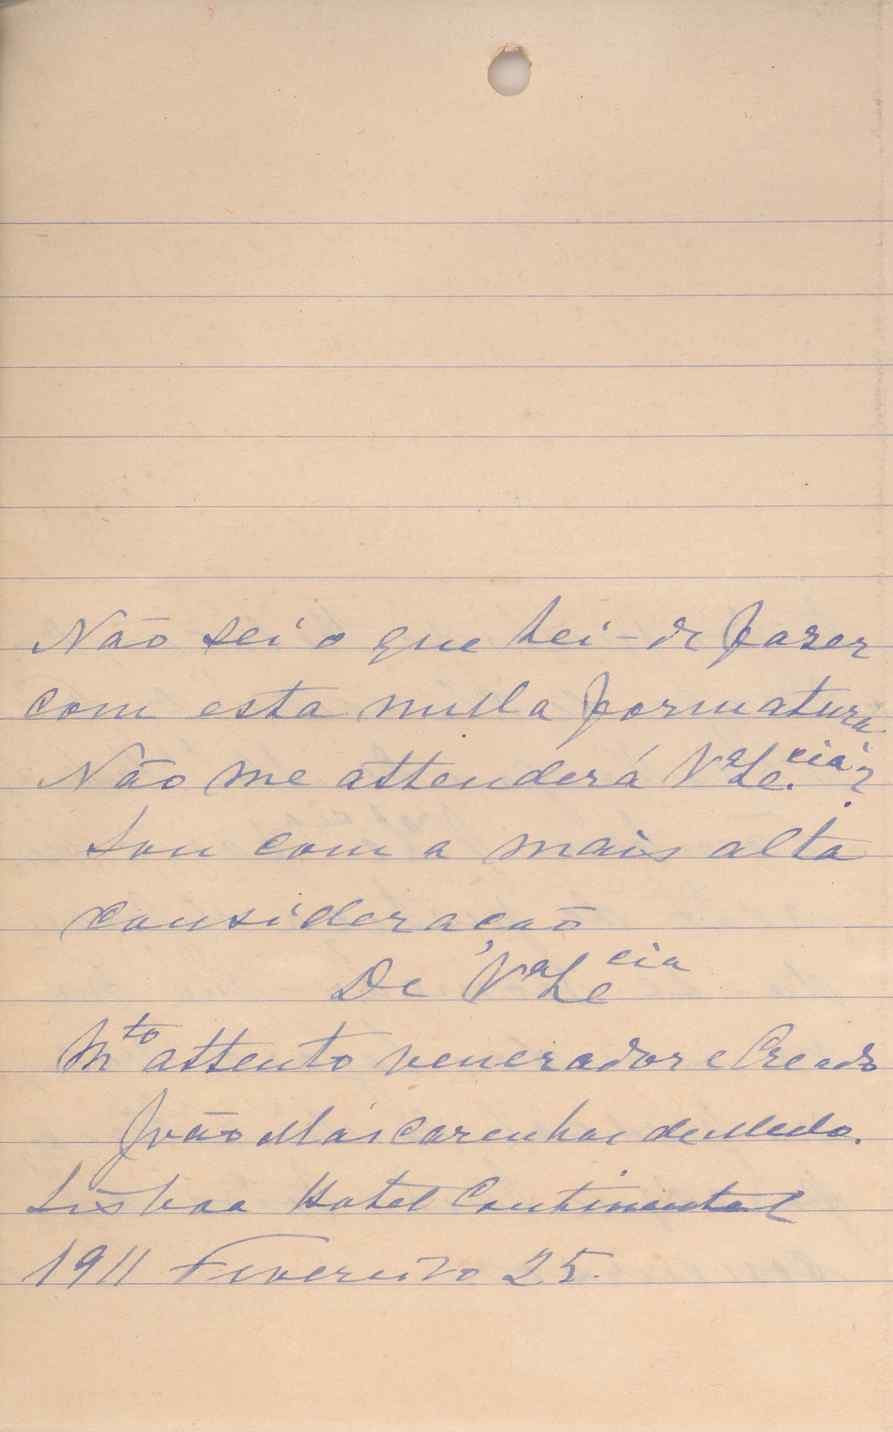 Não sei o que hei-de fazer
com esta nulla formatura
Não me attenderá V.ª Ex.cia?
Sou com a mais alta
consideração
De V.ª Ex.cia
M.to attento venerador e Creado
João Mascarenhas de Mello.
Lisboa Hotel Continental
1911 Fevereiro 25.